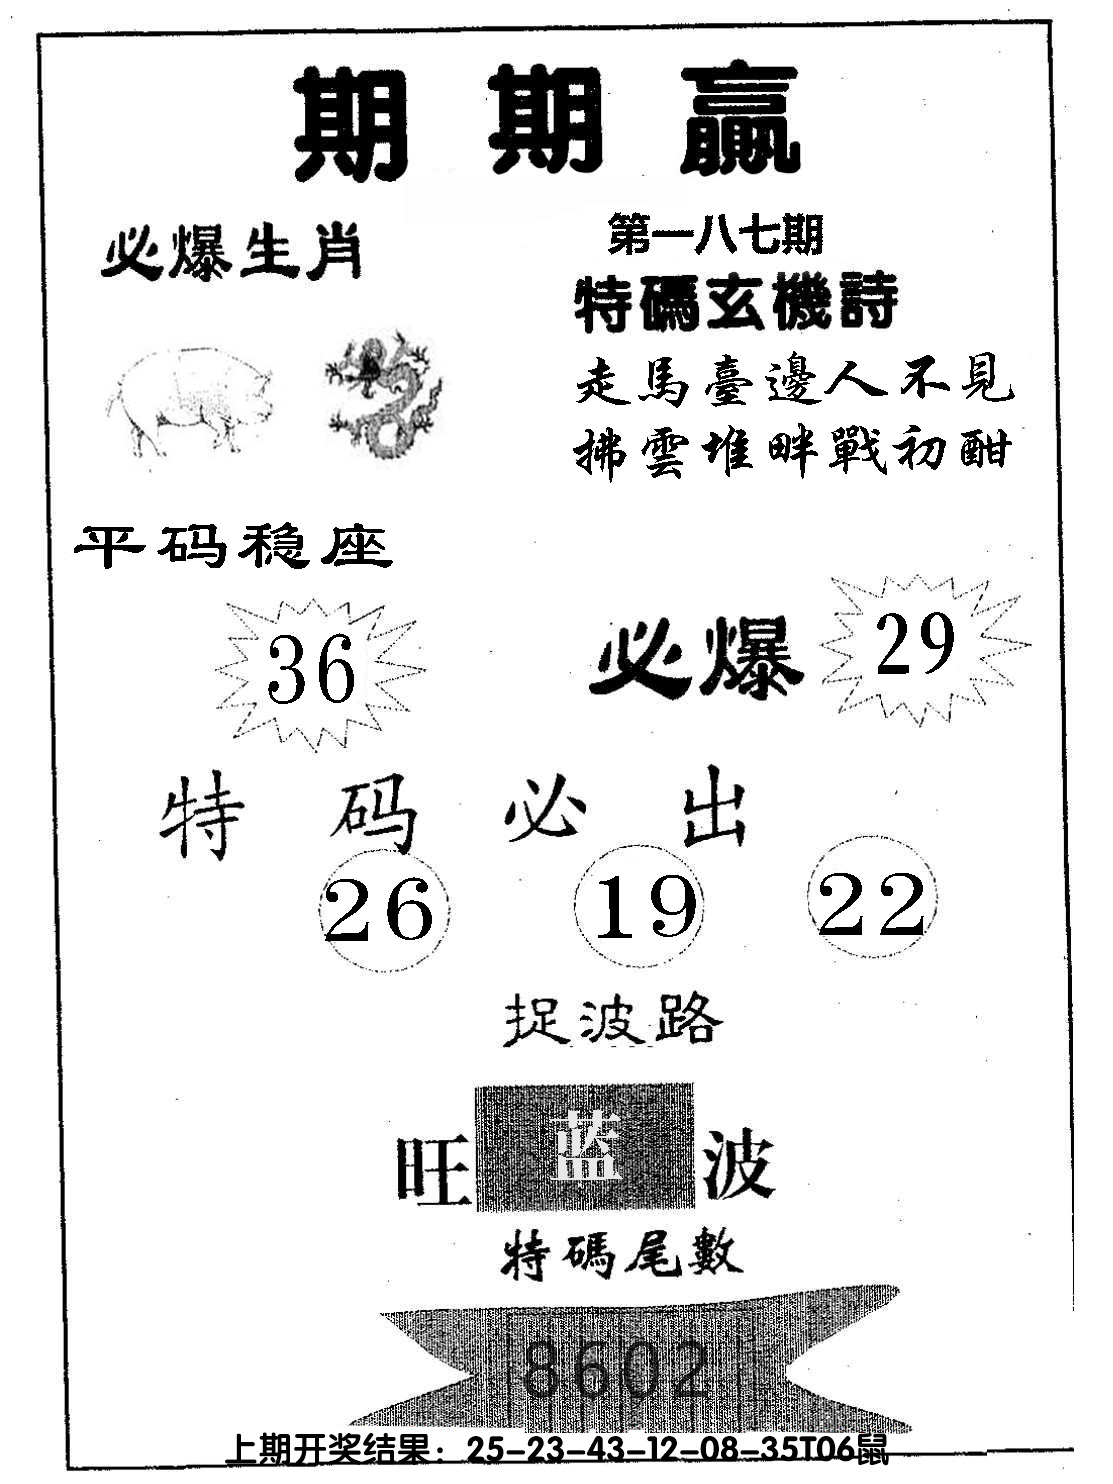 期期贏
必爆生肖
第一八七期
特碼玄機詩
走馬臺邊人不見
拂雲堆畔戰初酣
平码稳座
36
必爆
29
特码必出
26 19 22
捉波路
旺蓝波
特碼尾數
8602
上期开奖结果：25-23-43-12-08-35T06鼠